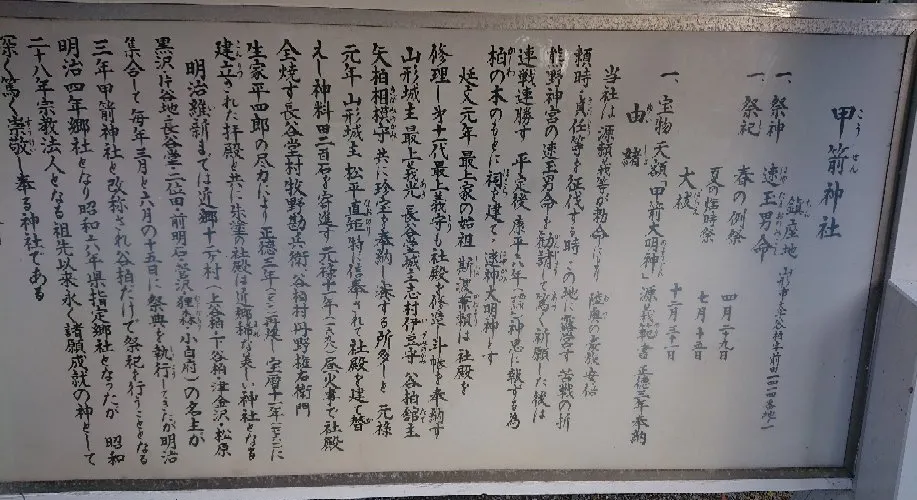 甲箭神社
鎮座地 山形市大字谷柏字前田
一、祭神 速玉男命
一、祭祀 春の例祭 四月二十九日
夏の煙時祭 七月十五日
大祓 十二月三十一日
一、宝物 大額「甲箭大明神」源義範書 正徳三年奉納
由緒
当社は源頼義等が勅命により 陸奥の豪族安倍
頼時 貞任等を征伐する時、この地に露営す 苦戦の折
熊野神宮の速玉男命を勧請して篤く祈願した後は
連戦連勝す 平定後、康平六年 神恩に報する為
柏の木のもとに祠を建て、速神大明神とす
延文元年 最上家の始祖 斯波兼頼は社殿を
修理し第十代最上義守も社殿を修造し斗帳を奉納す
山形城主 最上義光 長谷堂城主志村伊豆守 谷柏館主
矢柏相模守 共に珍宝を奉納し来する所多しと 元禄
元年 山形城主 松平直矩特に信奉されて社殿を建て替
えし神料田二百石を寄進す 元禄十二年 昼火事で社殿
全焼す 長谷堂村牧野勘兵衛 谷柏村丹野権右衛門
生家平四郎の尽力により 正徳三年 再建し 宝暦十一年 に
建立された拝殿と共に朱塗の社殿は近郷稀なる美しい神社となる
明治維新までは近郷十二ヶ村(上谷柏・下谷柏・津金沢・松原
黒沢・片谷地・長谷堂・二位田・前明石・菅沢・狸森・小白府)の名主が
集合して毎年三月と六月の十五日に祭典を執行してきたが明治
三年 甲箭神社と改称され谷柏だけで祭祀を行うこととなる
明治四年 郷社となり 昭和十八年県指定郷社となったが 昭和
二十八年宗教法人となる祖先以来永く諸願成就の神として
深く篤く崇敬し奉る神社である